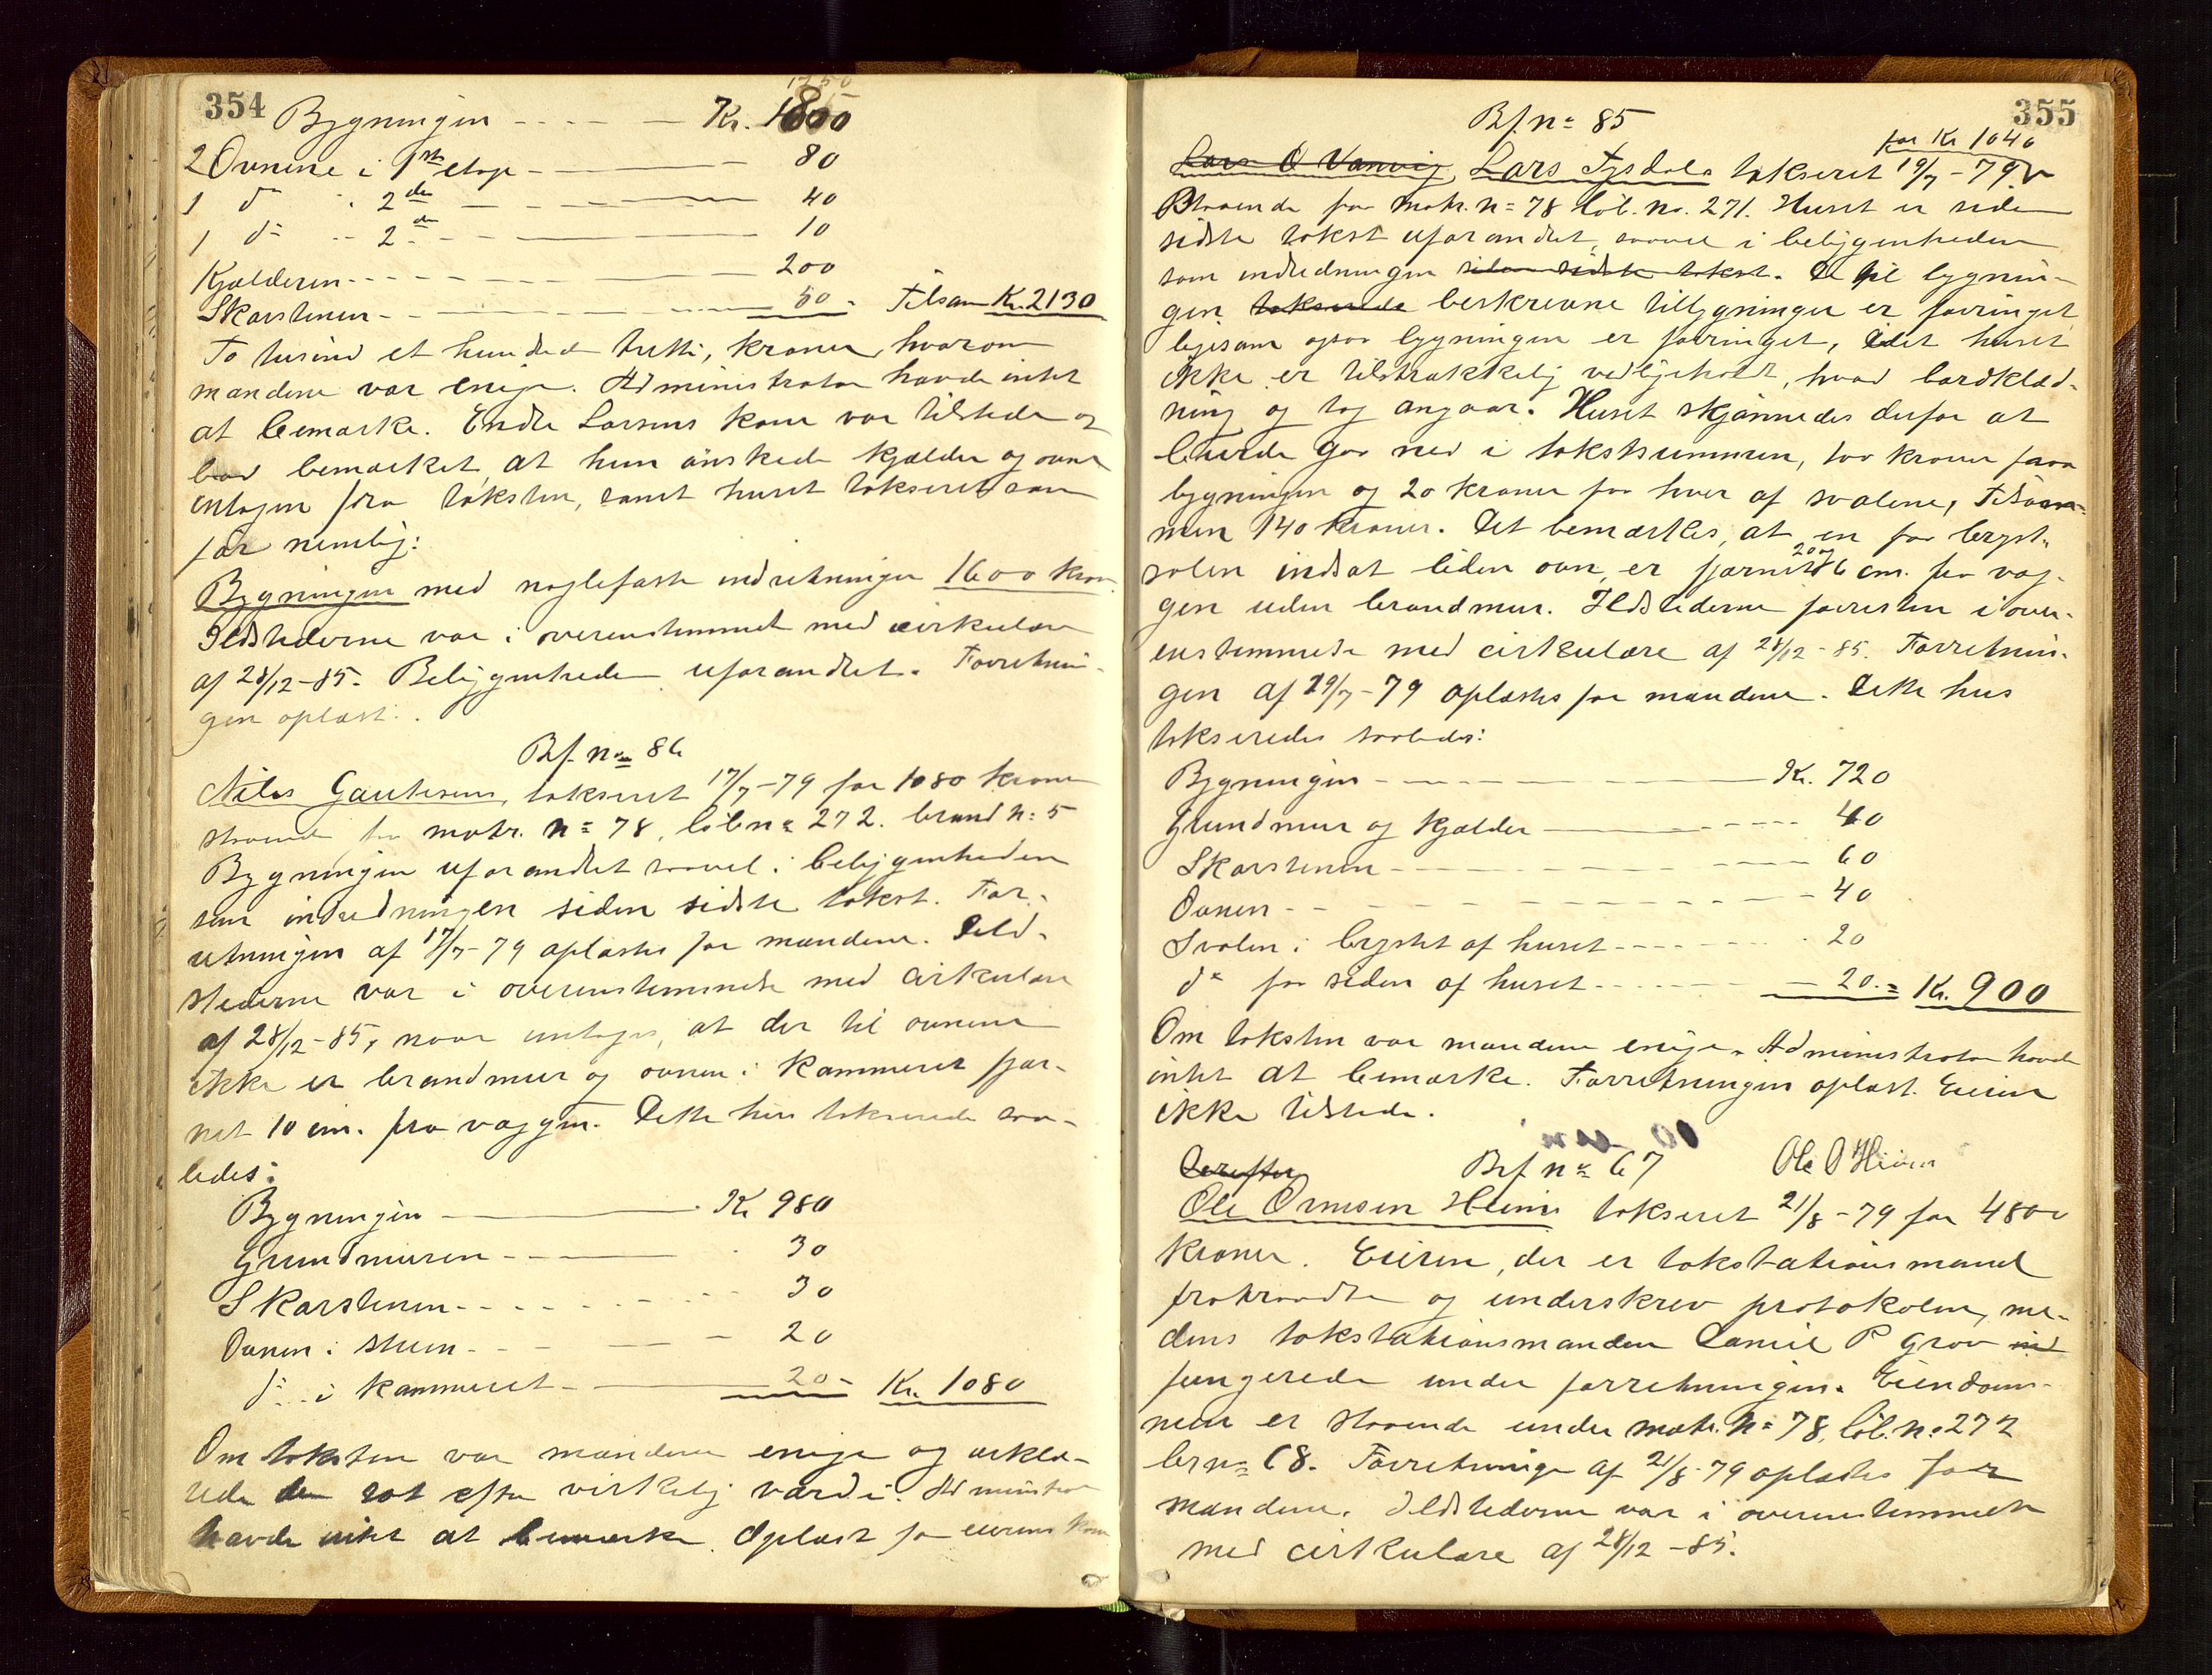 354
1750
Bygningen - - - - - Kr. 1800
2 Ovnene i 1ste etage - - 80
1 do " 2den - - 40
1 do " 2den - - 10
Kjælderen - - - 200
Skorstenen - - - 50 - Tilsam Kr. 2130
To tusind et hundred tretti, kroner, hvorom
mændene var enige. Administrator havde intet
at bemærke. Endre Larsens kone var tilstede og
bad bemærket, at hun ønskede kjælder og ovne
intagen fra taksten, samt huset takseret som
før nemlig:
Bygningen med naglefaste indretninger 1600 kron
Ildstederne var i overenstemmelse med cirkulære
af 28/12-85. Beliggenheden uforandret. Forretnin-
gen oplæst.
Bf. no 86
Nils Gautesens, takseret 17/7-79 for 1080 kroner
staaende paa matr. no 78, löb no 272. brand no 5
Bygningen uforandret saavel i beliggenheden
som indredningen siden sidste takst. For-
retningen af 17/7-79 oplæstes for mændene. Ild-
stederne var i overenstemmelse med cirkulære
af 28/12-85, naar untages, at der til ovnene
ikke er brandmur og ovnen i kammeret fjer-
net 10 cm. fra væggen. Dette hus takserede saa-
ledes:
Bygningen - Kr. 980
Grundmuren - - - 30
Skorstenen - - - 30
Ovnen i stuen - - - 20
do i kammeret - 20 - Kr. 1080
Om taksten var mændene enige og erklæ-
rede den sat efter virkelig værdi. Administrator
havde intet at bemærke. Oplæst for eierens kone
355
Bf. no 85
for Kr 1040
Lars O Vanvig, Lars Tysdals takseret 19/7-79
Staaende paa matr. no 78 löb. no. 271. Huset er siden
sidste takst uforandret, saavel i beliggenheden
som indredningen siden sidste takst. De til bygnin-
gen takserede beskrevne tilbygninger er forringet
ligesom ogsaa bygningen er forringet, idet huset
ikke er tilstrækkelig vedligeholdt, hvad bordklæd-
ning og tag angaar. Huset skjønnedes derfor at
burde gaa ned i takstsummen, 100 kroner paa
bygningen og 20 kroner for hver af svalene, Tilsam-
men 140 kroner. Det bemærkes, at en paa bryst-
svalen indsat liden ovn, er fjernet 20 og 6 cm. fra væg-
gen uden brandmur. Ildstederne forresten i over-
enstemmelse med cirkulære af 28/12-85. Forretnin-
gen af 19/7-79 oplæstes for mændene. Dette hus
takseredes saaledes:
Bygningen - - - Kr. 720
Grundmur og kjælder - - - 40
Skorstenen - - - 60
Ovnen - - - 40
Svalen i brystet af huset - - - 20
do paa siden af huset - - - 20. = Kr. 900
Om taksten var mændene enige. Administrator havde
intet at bemærke. Forretningen oplæst. Eieren
ikke tilstede.
Derefter Brf no 67 Ole O Heinn
Ole Ormsen Heins takseret 21/8-79 for 4800
kroner. Eieren, der er takstationsmand
fratraadte og underskrev protokolen, me-
dens takstationsmanden Daniel P Grov ind
fungerede under forretningen. Eiendom-
men er staaende under matr. no 78, löb. no 272
br no 68. Forretningen af 21/8-79 oplæstes for
mændene. Ildstederne var i overenstemmelse
med cirkulære af 28/12-85.